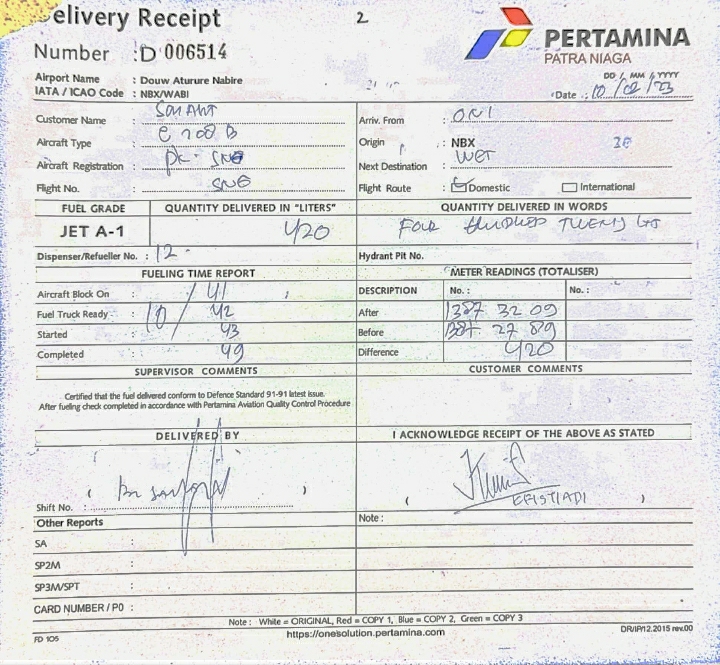 Delivery Receipt
2
Number : D 006514
PERTAMINA
PATRA NIAGA
Airport Name : Douw Aturure Nabire
IATA / ICAO Code : NBX/WABI
DD / MM / YYYY
Date : 10/02/23
Customer Name :
Arriv. From :
Aircraft Type : C 208 B
Origin : NBX
Aircraft Registration : PK-
Next Destination :
Flight No. :
Flight Route : Domestic International
FUEL GRADE QUANTITY DELIVERED IN "LITERS" QUANTITY DELIVERED IN WORDS
JET A-1 420 FOUR HUNDRED TWENTY
Dispenser/Refueller No. : 12
Hydrant Pit No.
FUELING TIME REPORT METER READINGS (TOTALISER)
Aircraft Block On : 41
DESCRIPTION No. : No. :
Fuel Truck Ready : 10/42
After 1387 32 09
Started : 43
Before 1387 27 89
Completed : 49
Difference 420
SUPERVISOR COMMENTS CUSTOMER COMMENTS
Certified that the fuel delivered conform to Defence Standard 91-91 latest issue.
After fueling check completed in accordance with Pertamina Aviation Quality Control Procedure
DELIVERED BY I ACKNOWLEDGE RECEIPT OF THE ABOVE AS STATED
Shift No. :
Other Reports Note :
SA :
SP2M :
SP3M/SPT :
CARD NUMBER / PO :
Note : White = ORIGINAL, Red = COPY 1, Blue = COPY 2, Green = COPY 3
FD 105 https://onesolution.pertamina.com DR/IP/12.2015 rev.00